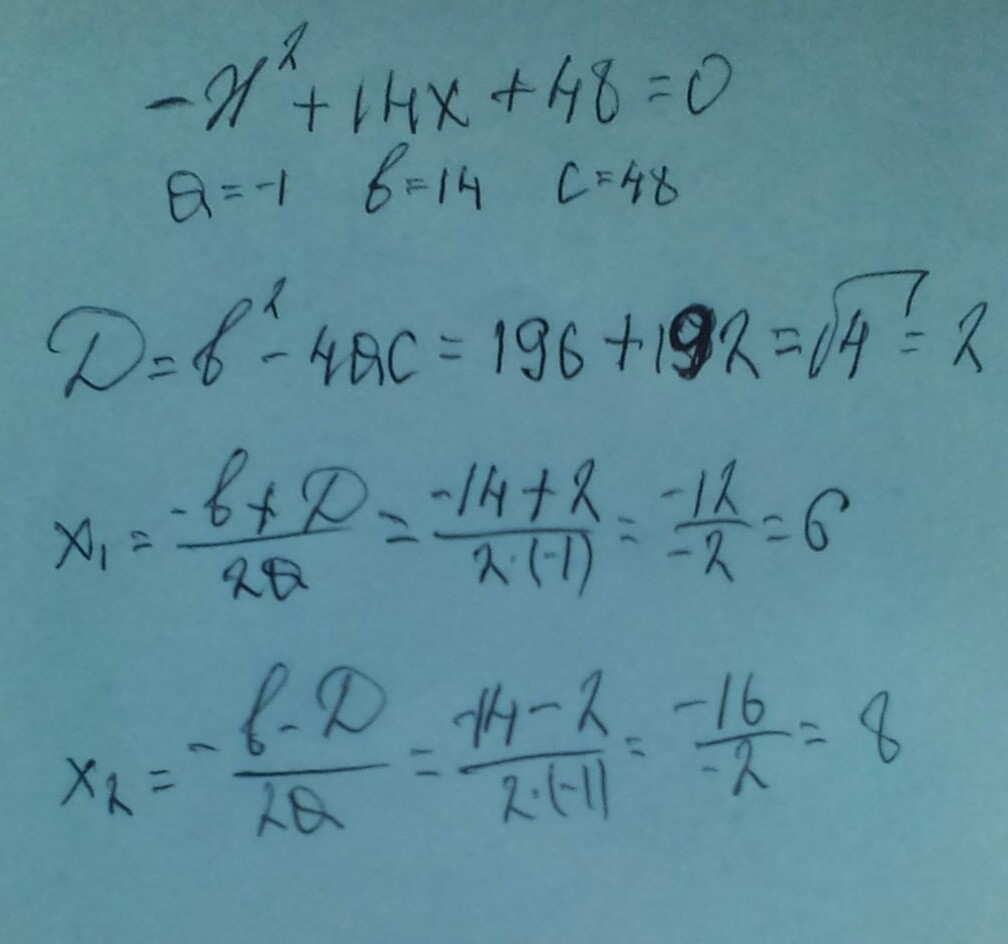 -x² + 14x + 48 = 0
a = -1 b = 14 c = 48
D = b² - 4ac = 196 + 192 = √4 = 2
x₁ = (-b + D)/(2a) = (-14 + 2)/(2·(-1)) = (-12)/(-2) = 6
x₂ = (-b - D)/(2a) = (-14 - 2)/(2·(-1)) = (-16)/(-2) = 8